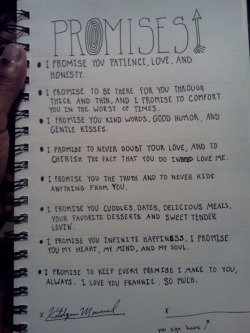 PROMISES
I PROMISE YOU PATIENCE, LOVE, AND
HONESTY.
I PROMISE TO BE THERE FOR YOU THROUGH
THICK AND THIN, AND I PROMISE TO COMFORT
YOU IN THE WORST OF TIMES.
I PROMISE YOU KIND WORDS, GOOD HUMOR, AND
GENTLE KISSES.
I PROMISE TO NEVER DOUBT YOUR LOVE, AND TO
CHERISH THE FACT THAT YOU DO INDEED LOVE ME.
I PROMISE YOU THE TRUTH AND TO NEVER HIDE
ANYTHING FROM YOU.
I PROMISE YOU CUDDLES, DATES, DELICIOUS MEALS,
YOUR FAVORITE DESSERTS AND SWEET TENDER
LOVIN'.
I PROMISE YOU INFINITE HAPPINESS. I PROMISE
YOU MY HEART, MY MIND, AND MY SOUL.
I PROMISE TO KEEP EVERY PROMISE I MAKE TO YOU,
ALWAYS. I LOVE YOU FRANNIE. SO MUCH.
X X
you sign here